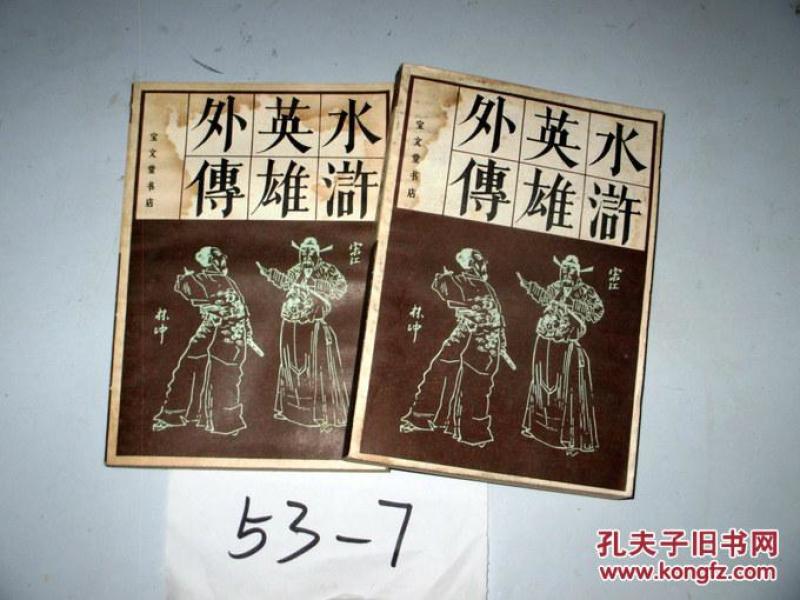 水滸
英雄
外傳
宝文堂书店
宋江
林冲
水滸
英雄
外傳
宝文堂书店
宋江
林冲
53-7
孔夫子旧书网
www.kongfz.com